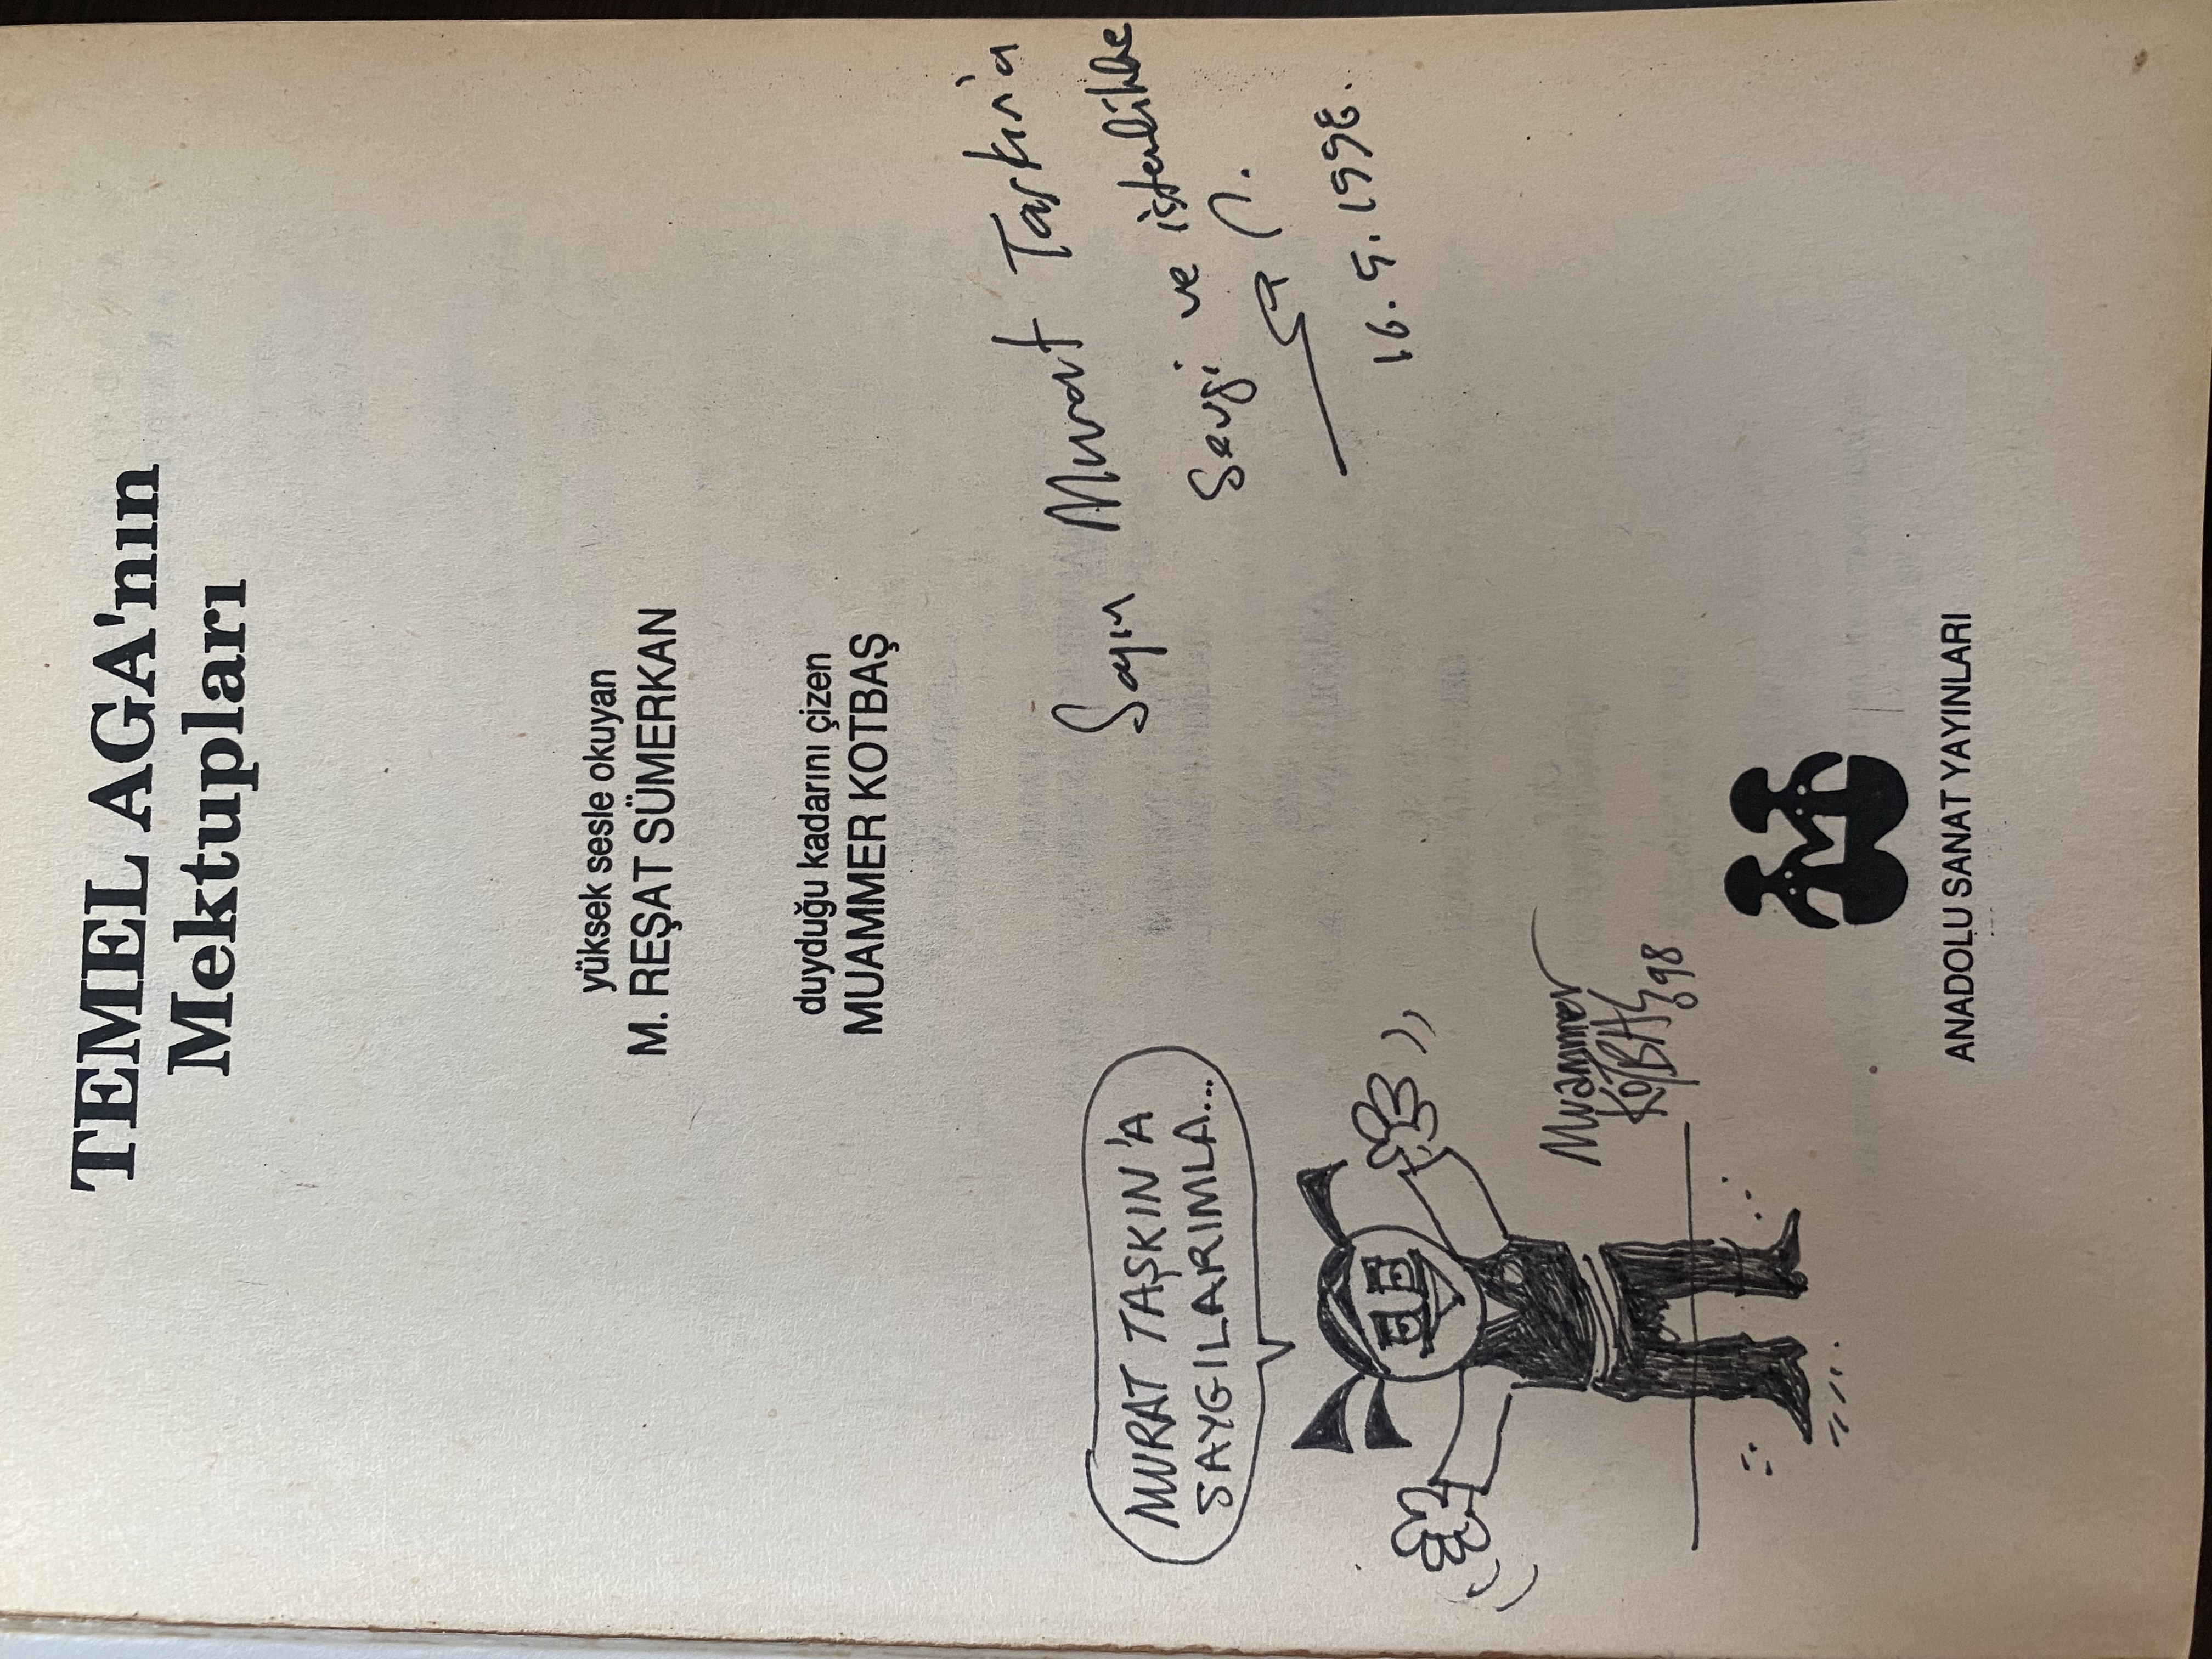 TEMEL AGA'nın
Mektupları
yüksek sesle okuyan
M. REŞAT SÜMERKAN
duyduğu kadarını çizen
MUAMMER KOTBAŞ
Sayın Murat Taşkın'a
Sevgi ve içtenlikle
16.5.1998.
MURAT TAŞKIN'A
SAYGILARIMLA...
Muammer
KOTBAŞ 98
ANADOLU SANAT YAYINLARI